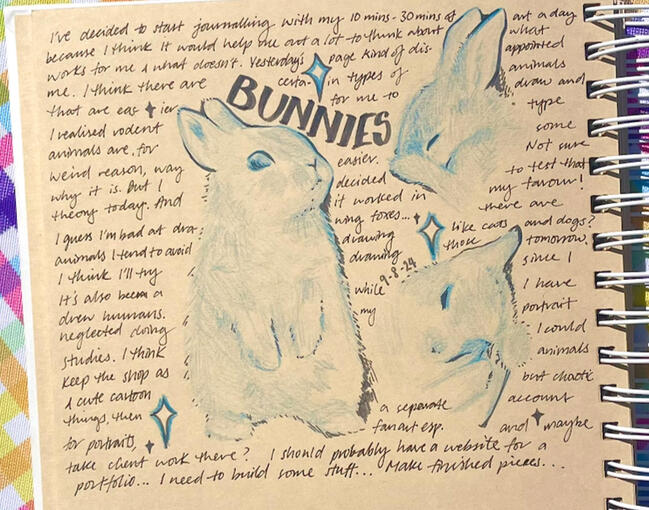 I've decided to start journalling with my 10 mins - 30 mins of art a day
because I think it would help me out a lot to think about what
works for me & what doesn't. Yesterday's page kind of disappointed
me. I think there are certain types of animals
that are easier for me to draw and
I realised rodent type
animals are, for some
weird reason, way easier. Not sure
why it is. But I decided to test that
theory today. And it worked in my favour!
I guess I'm bad at drawing foxes... there are
animals I tend to avoid drawing like cats and dogs?
I think I'll try drawing those tomorrow.
It's also been a while since I
drew humans. my I have
neglected doing portrait
studies. I think I could
keep the shop as animals
& cute cartoon but chaotic
things, then a separate account
for portraits, fanart esp. and maybe
take client work there? I should probably have a website for a
portfolio... I need to build some stuff... Make finished pieces...
BUNNIES
9-8-24